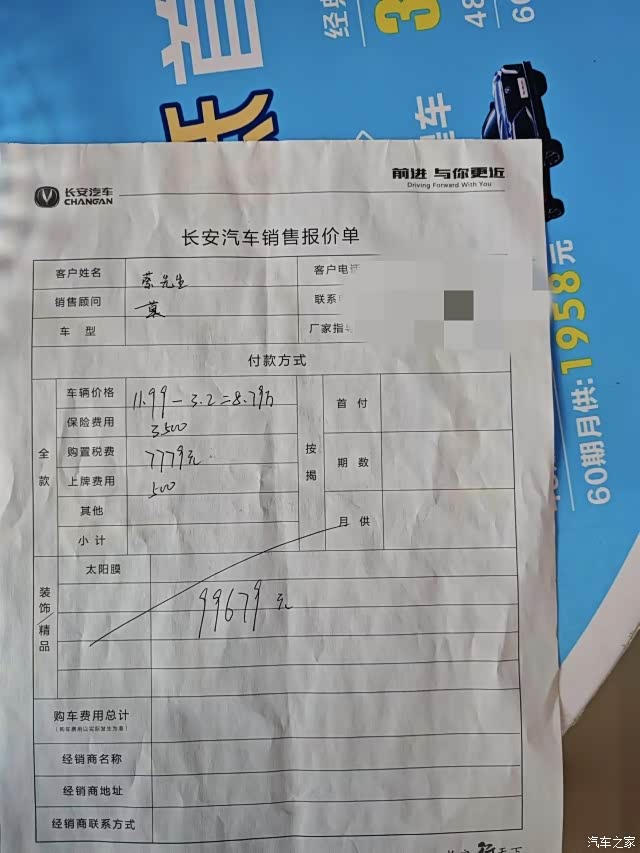 经典
3
48
60
车
1958元
60期月供:
长安汽车
CHANGAN
前进 与你更近
Driving Forward With You
长安汽车销售报价单
客户姓名 蔡先生 客户电话
销售顾问 联系
车 型 厂家指
付款方式
全款
车辆价格 11.99-3.2=8.79万
保险费用 3500
购置税费 7779元
上牌费用 500
其他
小计
按揭
首付
期数
月供
装饰/精品
太阳膜
99679元
购车费用总计
(购车费用以实际发生为准)
经销商名称
经销商地址
经销商联系方式
汽车之家